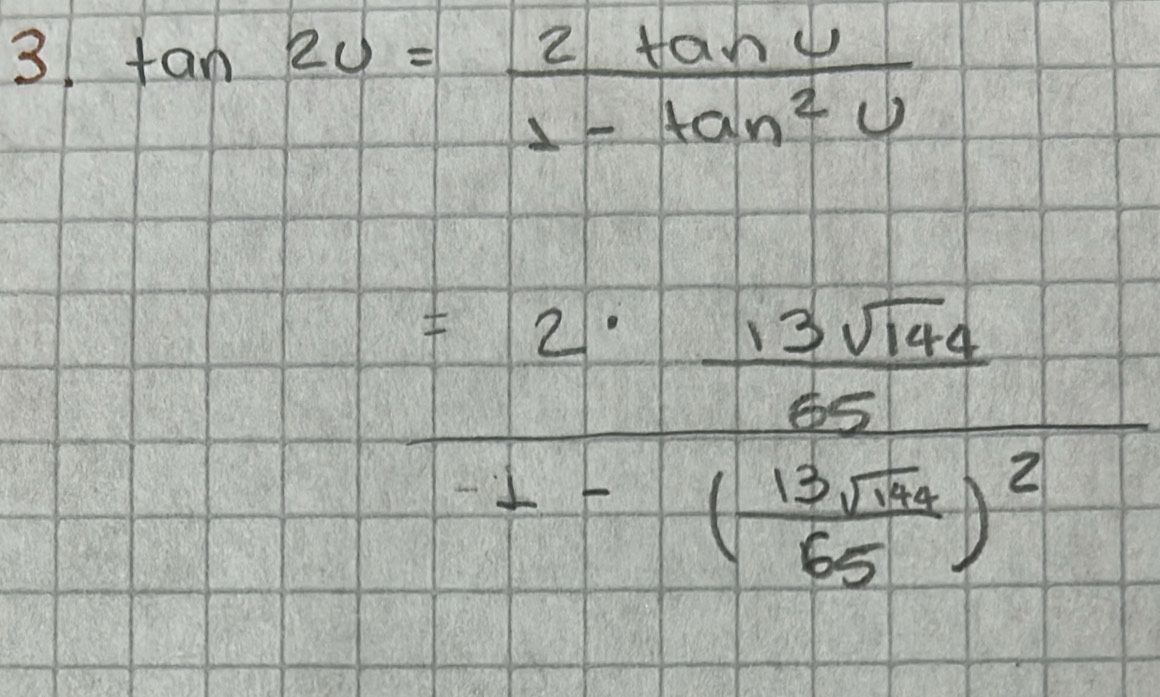 3. tan 2u = 2 tan u / 1 - tan² u
= 2 · 13√144 / 65
-1 - (13√144 / 65)²